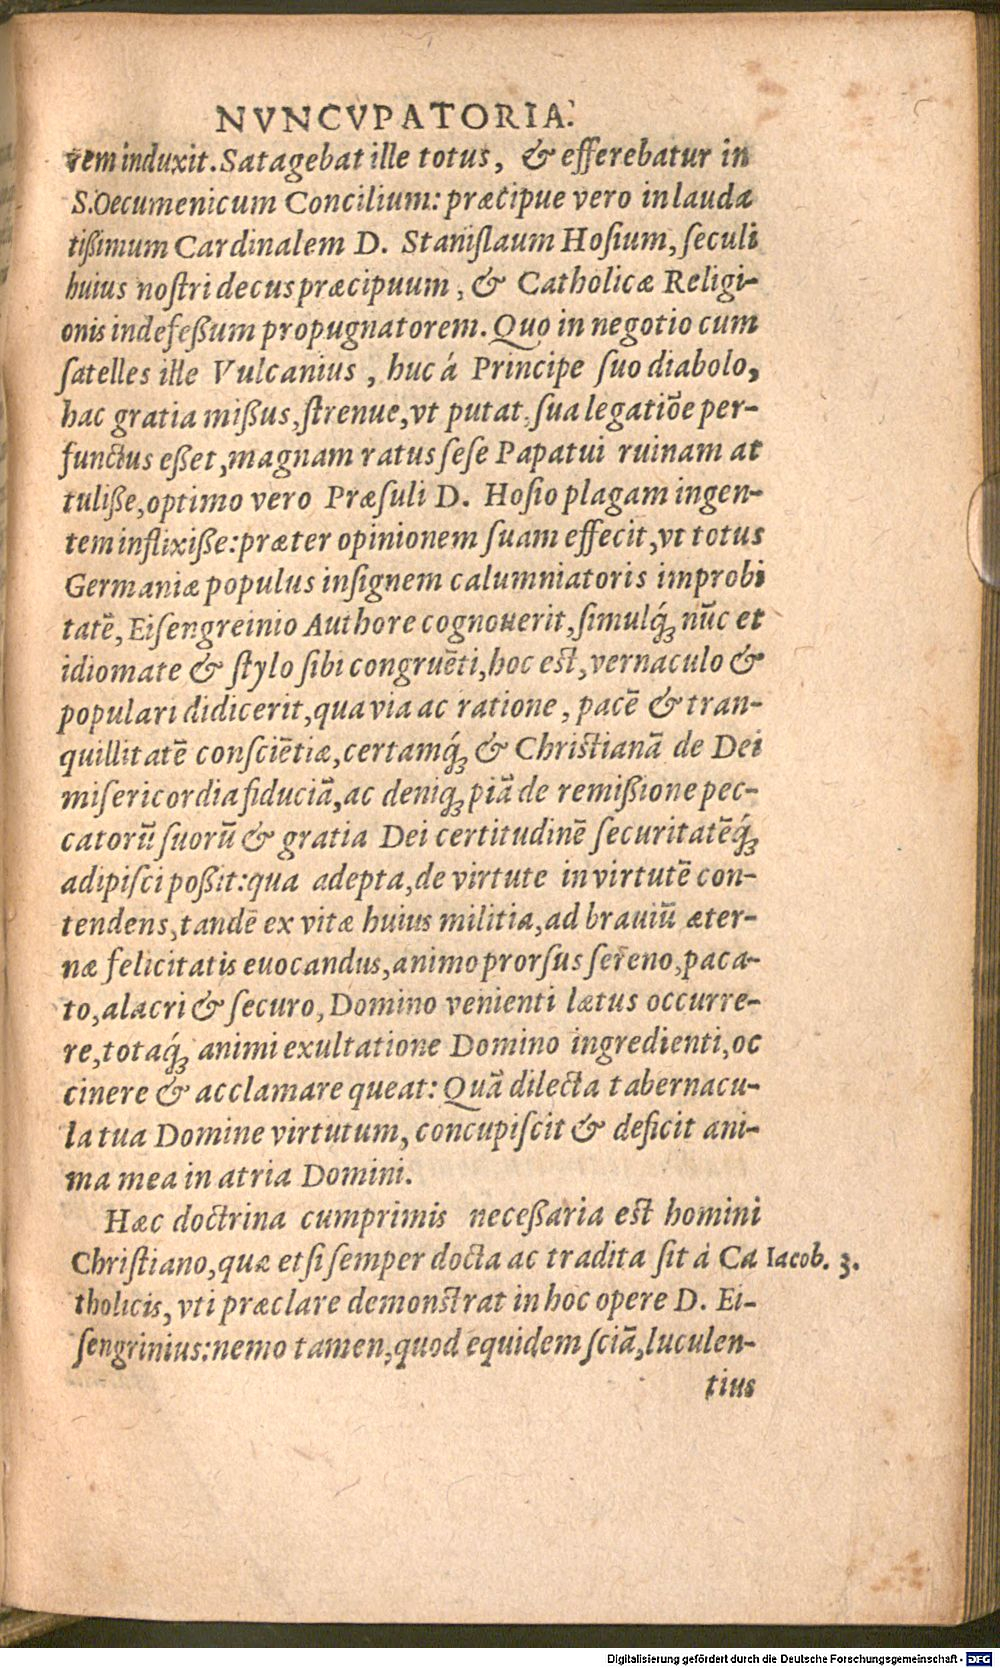 NVNCVPATORIA.
rem induxit. Satagebat ille totus, & efferebatur in
S. Oecumenicum Concilium: præcipue vero in lauda
tißimum Cardinalem D. Staniſlaum Hoſium, ſeculi
huius noſtri decus præcipuum, & Catholicæ Religi-
onis indefeßum propugnatorem. Quo in negotio cum
ſatelles ille Vulcanius, huc á Principe ſuo diabolo,
hac gratia mißus, ſtrenue, vt putat, ſua legatiōe per-
functus eßet, magnam ratus ſeſe Papatui ruinam at
tuliße, optimo vero Præſuli D. Hoſio plagam ingen-
tem inflixiße: præter opinionem ſuam effecit, vt totus
Germaniæ populus inſignem calumniatoris improbi
tatē, Eiſengreinio Authore cognouerit, ſimulq́ꝫ nūc et
idiomate & ſtylo ſibi congruēti, hoc est, vernaculo &
populari didicerit, qua via ac ratione, pacē & tran-
quillitatē conſciētiæ, certamq́ꝫ & Christianā de Dei
miſericordia fiduciā, ac deniqꝫ piā de remißione pec-
catorū ſuorū & gratia Dei certitudinē ſecuritatēq́ꝫ
adipiſci poßit: qua adepta, de virtute in virtutē con-
tendens, tandē ex vitæ huius militia, ad brauiū æter-
næ felicitatis euocandus, animo prorſus ſereno, paca-
to, alacri & ſecuro, Domino venienti lætus occurre-
re, totaq́ꝫ animi exultatione Domino ingredienti, oc
cinere & acclamare queat: Quā dilecta tabernacu-
la tua Domine virtutum, concupiſcit & deficit ani-
ma mea in atria Domini.
Hæc doctrina cumprimis neceßaria est homini
Chriſtiano, quæ etſi ſemper docta ac tradita ſit à Ca Iacob. 3.
tholicis, vti præclare demonstrat in hoc opere D. Ei-
ſengrinius: nemo tamen, quod equidem ſciā, luculen-
tius
Digitalisierung gefördert durch die Deutsche Forschungsgemeinschaft - DFG